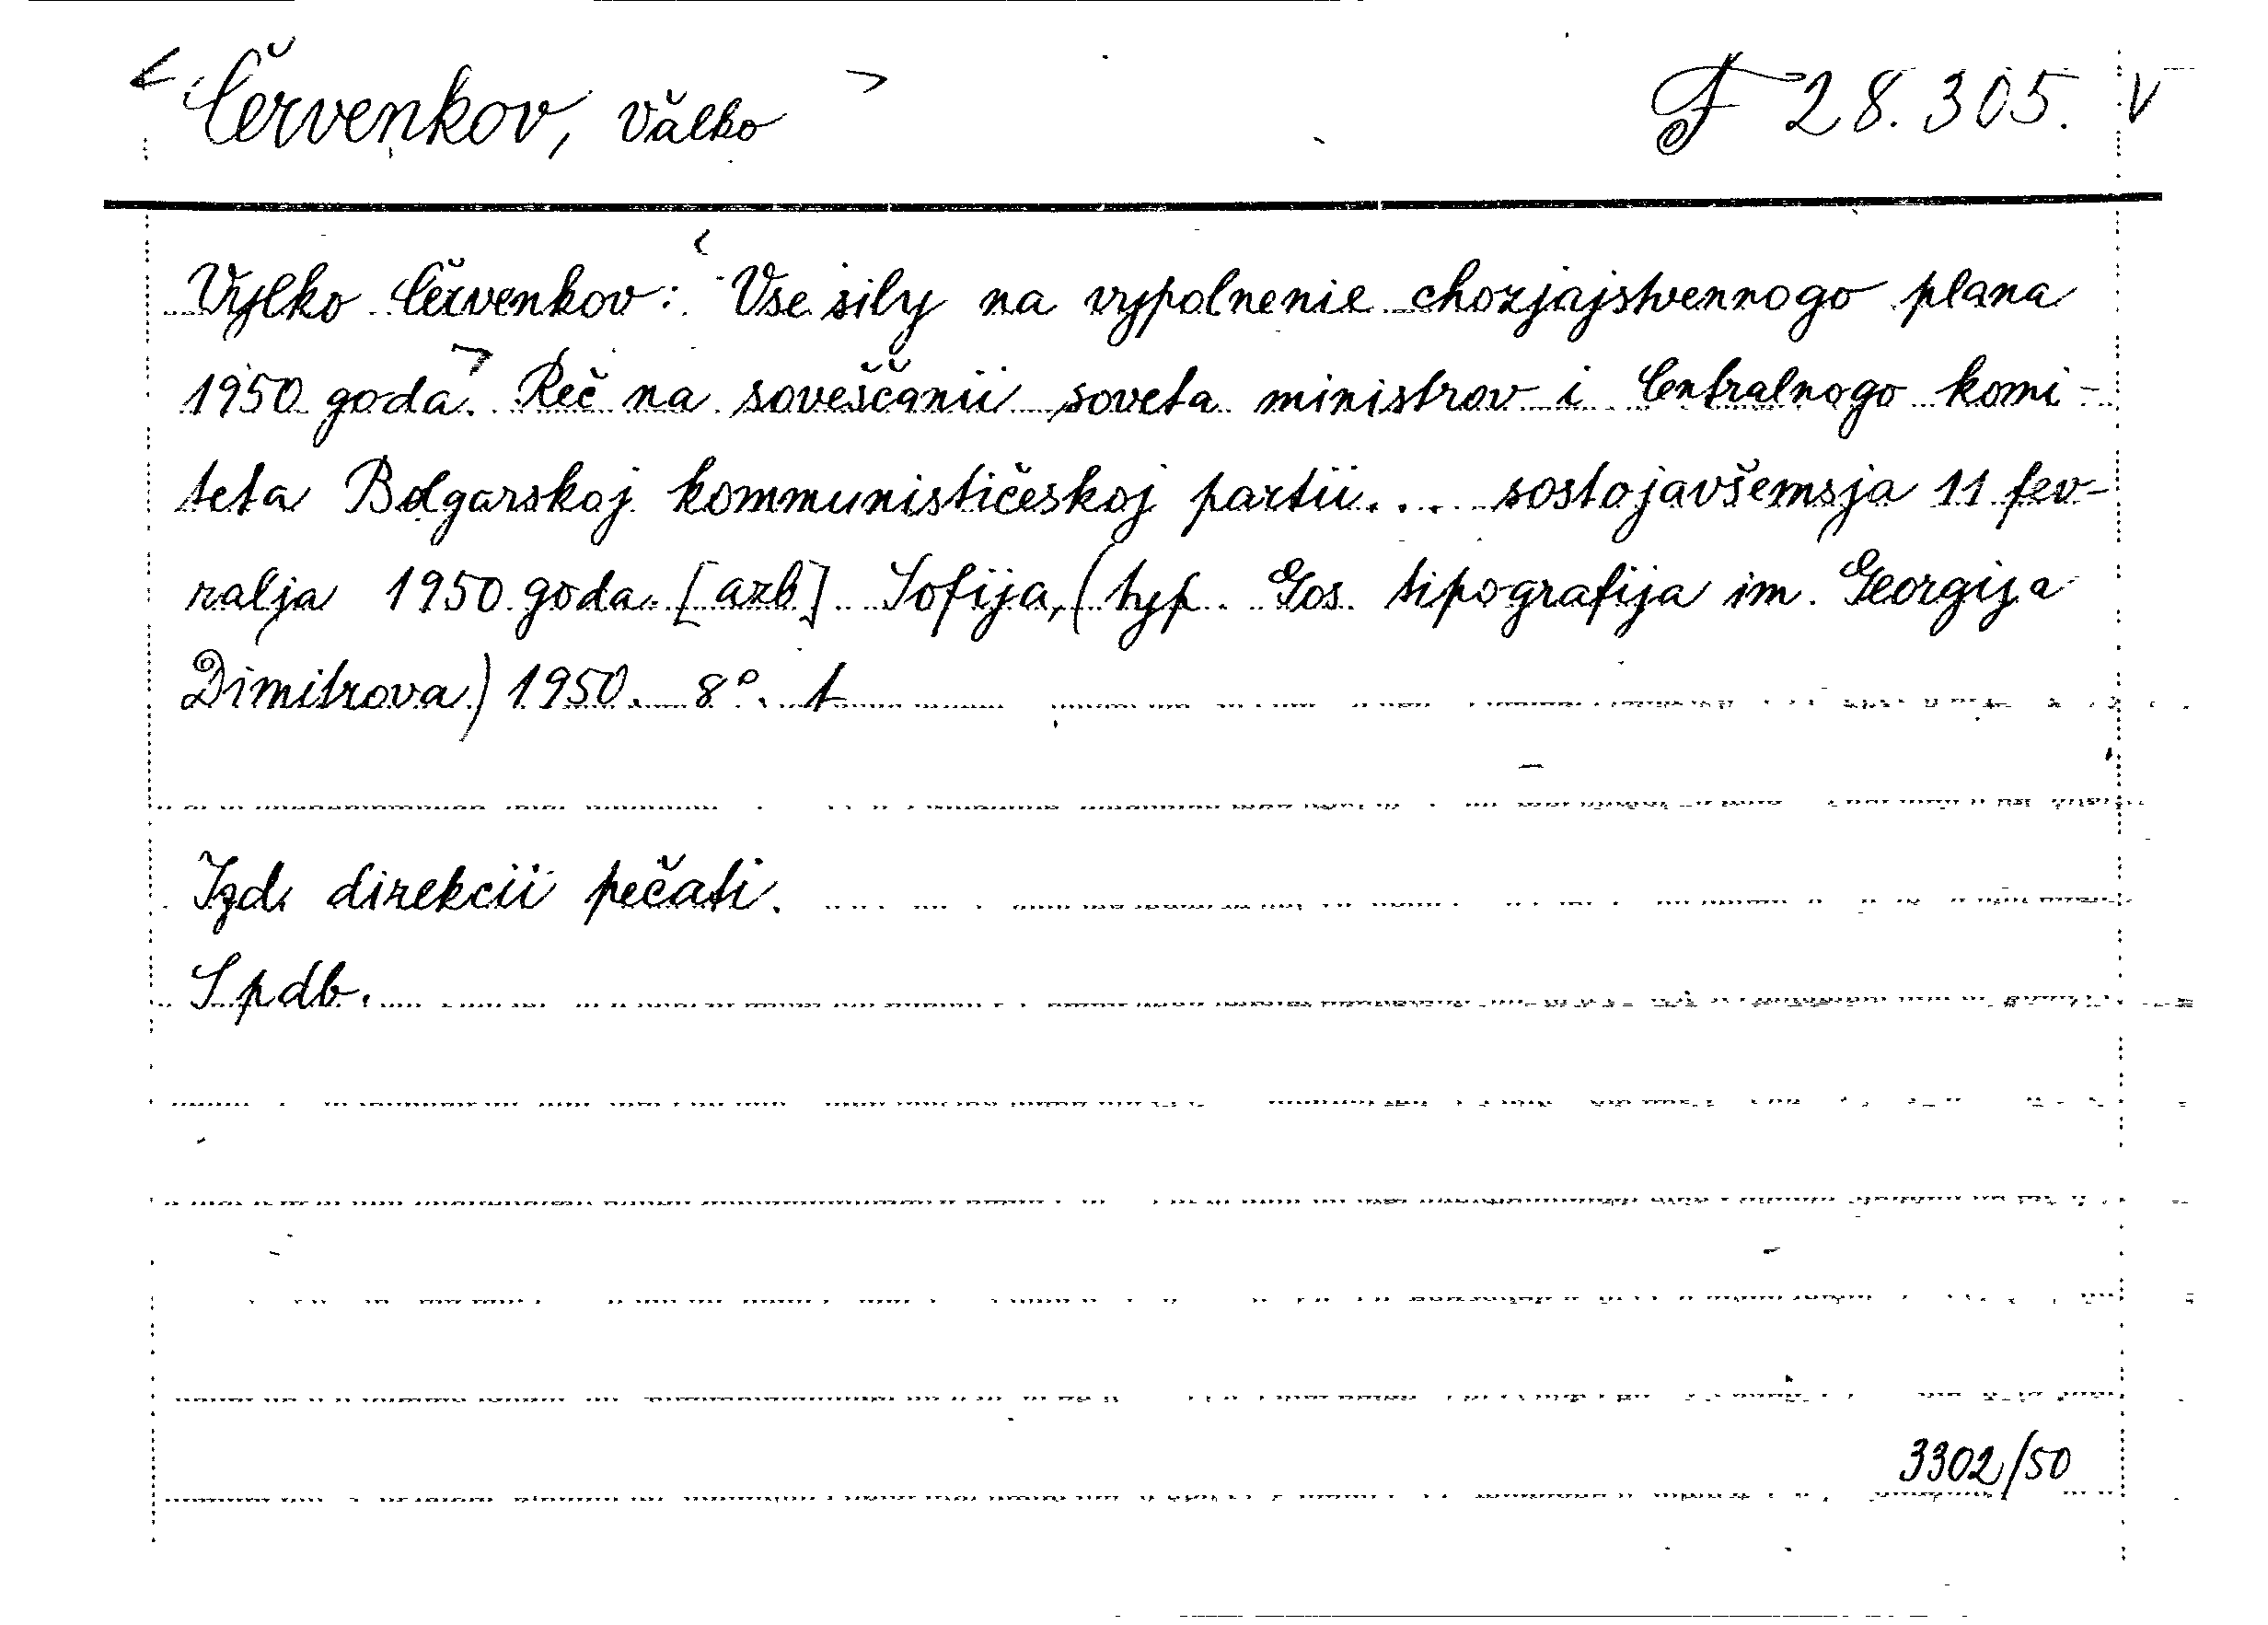 < Červenkov, Vălko > F 28.305. V
Vylko Červenkov: < Vse sily na vypolnenie chozjajstvennogo plana
1950 goda.> Reč na soveščanii soveta ministrov i Centralnogo komi-
teta Bolgarskoj kommunističeskoj partii... sostojavšemsja 11 fev-
ralja 1950 goda. [azb] Sofija, (typ. Gos. tipografija im. Georgija
Dimitrova) 1950. 8°. t
Izd. direkcii pečati.
S pdb.
3302/50